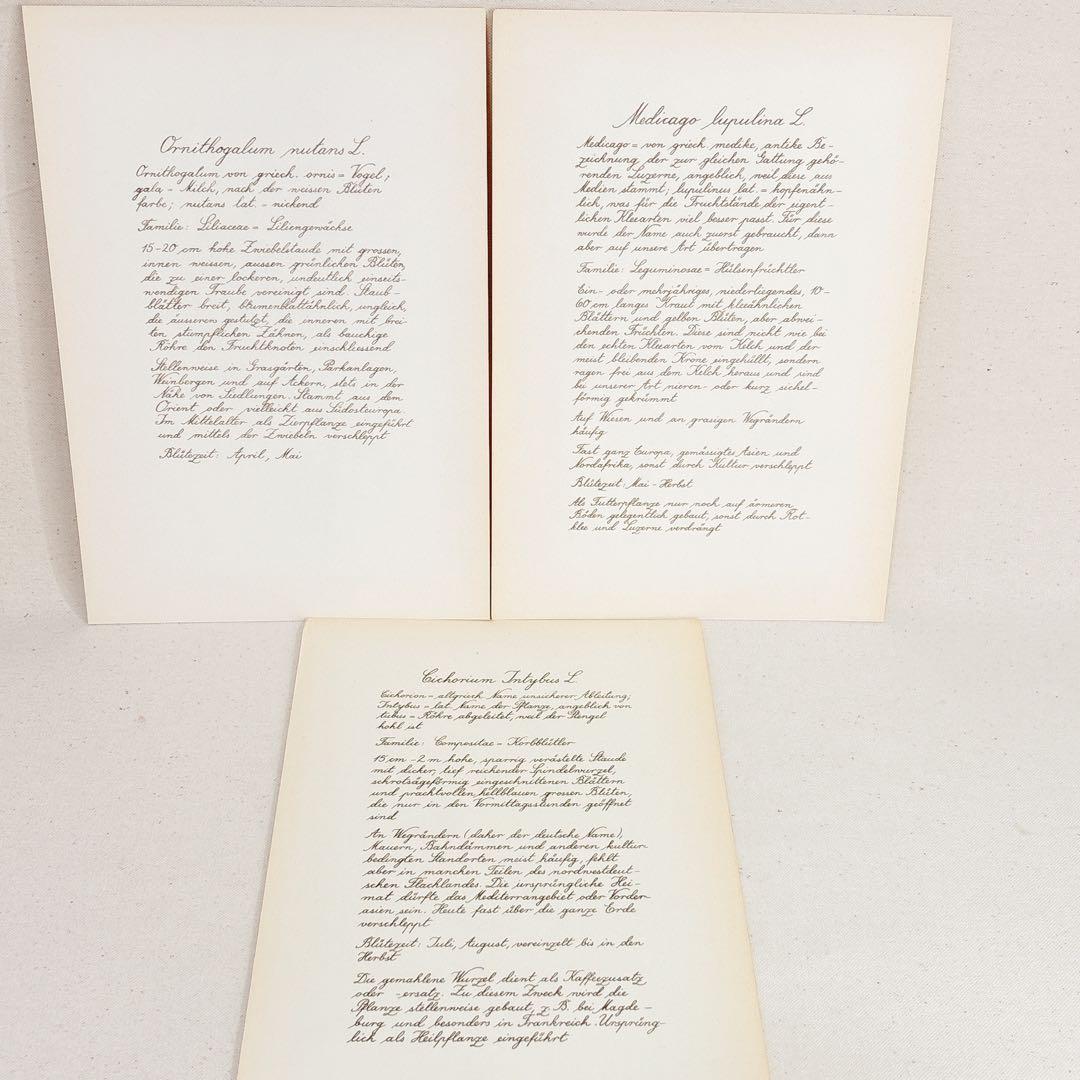 Ornithogalum nutans L.
Ornithogalum von griech. ornis = Vogel;
gala = Milch, nach der weissen Blüten
farbe; nutans lat. = nickend
Familie: Liliaceae = Liliengewächse
15-20 cm hohe Zwiebelstaude mit grossen,
innen weissen, aussen grünlichen Blüten,
die zu einer lockeren, undeutlich einseits-
wendigen Traube vereinigt sind. Staub-
blätter breit, blumenblattähnlich, ungleich,
die äusseren gestutzt, die inneren mit brei-
ten stumpflichen Zähnen, als bauchige
Röhre den Fruchtknoten einschliessend
Stellenweise in Grasgärten, Parkanlagen,
Weinbergen und auf Äckern, stets in der
Nähe von Siedlungen. Stammt aus dem
Orient oder vielleicht aus Südosteuropa.
Im Mittelalter als Zierpflanze eingeführt
und mittels der Zwiebeln verschleppt
Blütezeit: April, Mai
Medicago lupulina L.
Medicago = von griech. medike, antike Be-
zeichnung der zur gleichen Gattung gehö-
renden Luzerne, angeblich, weil diese aus
Medien stammt; lupulinus lat. = hopfenähn-
lich, was für die Fruchtstände der eigent-
lichen Kleearten viel besser passt. Für diese
wurde der Name auch zuerst gebraucht, dann
aber auf unsere Art übertragen
Familie: Leguminosae = Hülsenfrüchtler
Ein- oder mehrjähriges, niederliegendes, 10-
60 cm langes Kraut mit kleeähnlichen
Blättern und gelben Blüten, aber abwei-
chenden Früchten. Diese sind nicht wie bei
den echten Kleearten vom Kelch und der
meist bleibenden Krone umgehüllt, sondern
ragen frei aus dem Kelch heraus und sind
bei unserer Art nieren- oder kurz sichel-
förmig gekrümmt
Auf Wiesen und an grasigen Wegrändern
häufig
Fast ganz Europa, gemässigtes Asien und
Nordafrika, sonst durch Kultur verschleppt
Blütezeit: Mai - Herbst
Als Futterpflanze nur noch auf ärmeren
Böden gelegentlich gebaut, sonst durch Rot-
klee und Luzerne verdrängt
Cichorium Intybus L.
Cichorion = altgriech. Name unsicherer Ableitung;
Intybus = lat. Name der Pflanze, angeblich von
tubus = Röhre abgeleitet, weil der Stengel
hohl ist
Familie: Compositae = Korbblütler
15 cm - 2 m hohe, sparrig verästelte Staude
mit dicker, tief reichender Spindelwurzel,
schrotsägeförmig eingeschnittenen Blättern
und prachtvollen hellblauen grossen Blüten,
die nur in den Vormittagsstunden geöffnet
sind
An Wegrändern (daher der deutsche Name),
Mauern, Bahndämmen und anderen kultur-
bedingten Standorten meist häufig, fehlt
aber in manchen Teilen des nordwestdeut-
schen Flachlandes. Die ursprüngliche Hei-
mat dürfte das Mediterrangebiet oder Vorder-
asien sein. Heute fast über die ganze Erde
verschleppt
Blütezeit: Juli, August, vereinzelt bis in den
Herbst
Die gemahlene Wurzel dient als Kaffeezusatz
oder -ersatz. Zu diesem Zweck wird die
Pflanze stellenweise gebaut, z. B. bei Magde-
burg und besonders in Frankreich. Ursprüng-
lich als Heilpflanze eingeführt